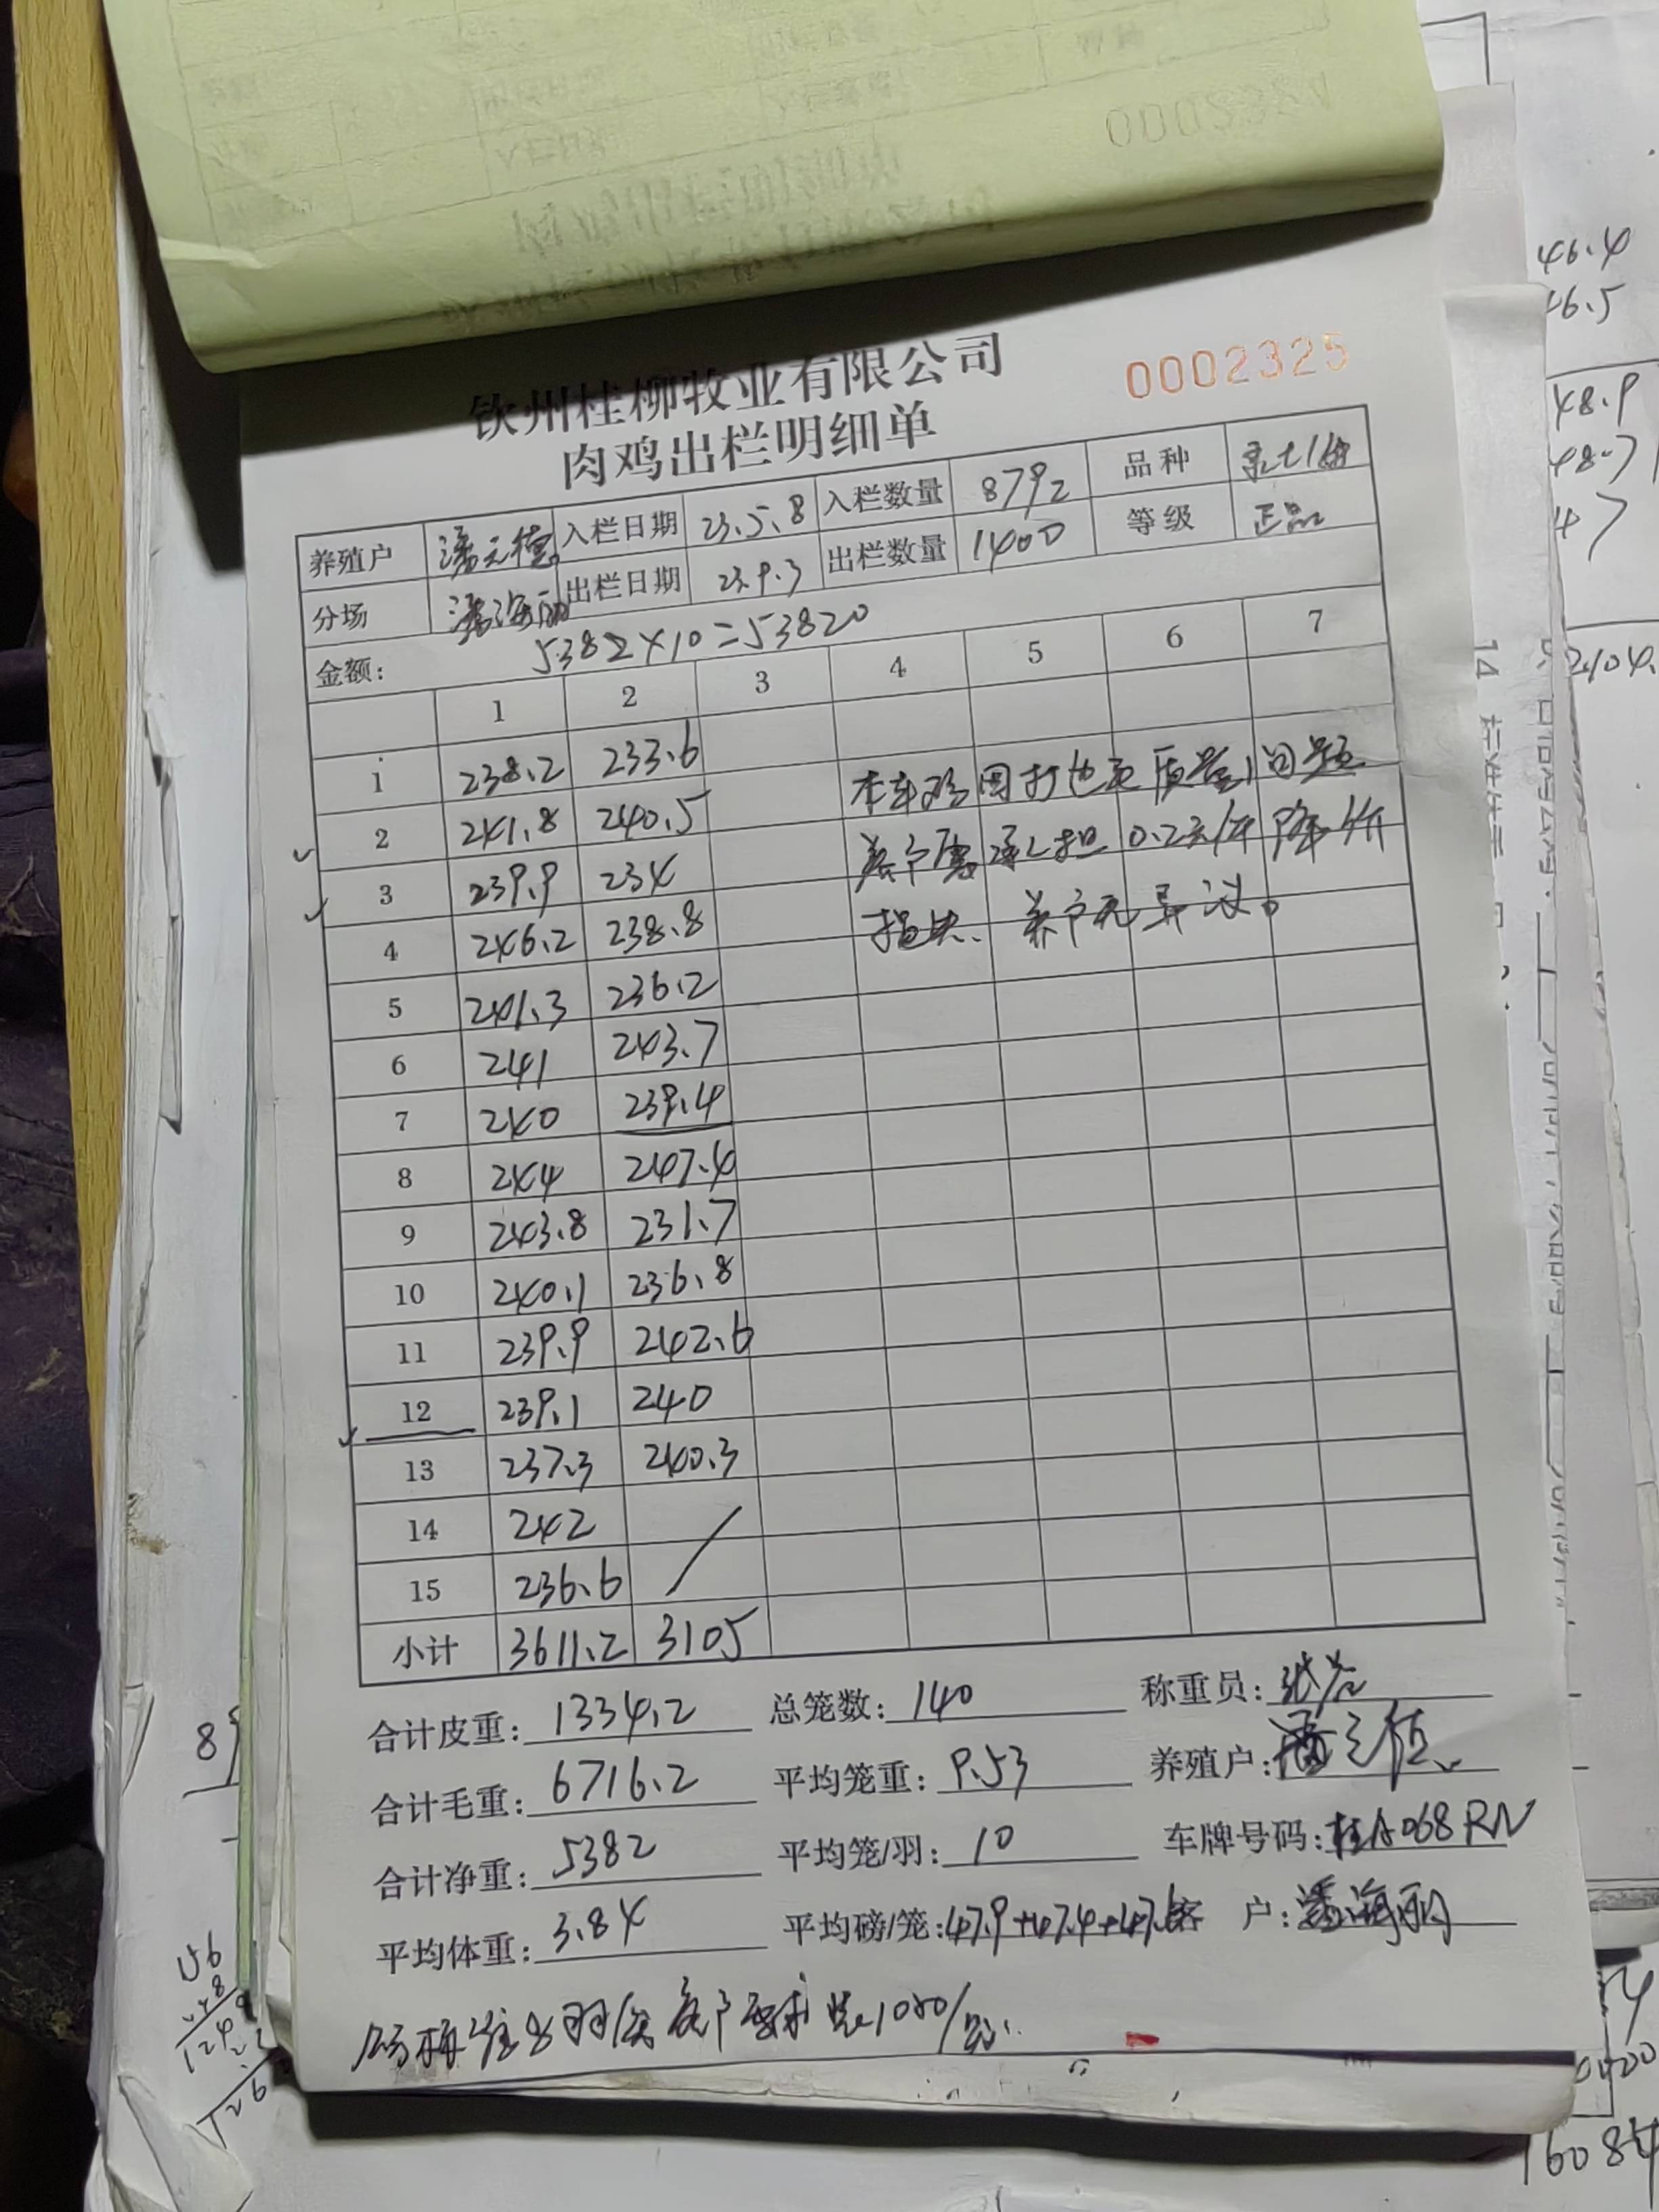 钦州桂柳牧业有限公司
肉鸡出栏明细单
0002325
养殖户 潘元德 入栏日期 23.5.8 入栏数量 8792 品种
分场 潘海丽 出栏日期 23.9.3 出栏数量 1400 等级 正品
金额: 5382×10=53820
1 2 3 4 5 6 7
1 238.2 233.6
2 241.8 240.5
3 239.9 234
4 246.2 238.8
5 241.3 236.2
6 241 243.7
7 240 239.4
8 244 247.4
9 243.8 231.7
10 240.1 236.8
11 239.9 242.6
12 239.1 240
13 237.3 240.3
14 242
15 236.6
小计 3611.2 3105
本车鸡因打包虫质量问题
养户需承担0.2元/斤降价
损失、养户无异议。
合计皮重: 1334.2 总笼数: 140 称重员:
合计毛重: 6716.2 平均笼重: 9.53 养殖户: 潘元德
合计净重: 5382 平均笼/羽: 10 车牌号码: 桂A068RN
平均体重: 3.84 平均磅/笼: 47.9+47.4+47.6 客 户: 潘海丽
46.4
46.5
48.9
48.7
47
2104.
16084